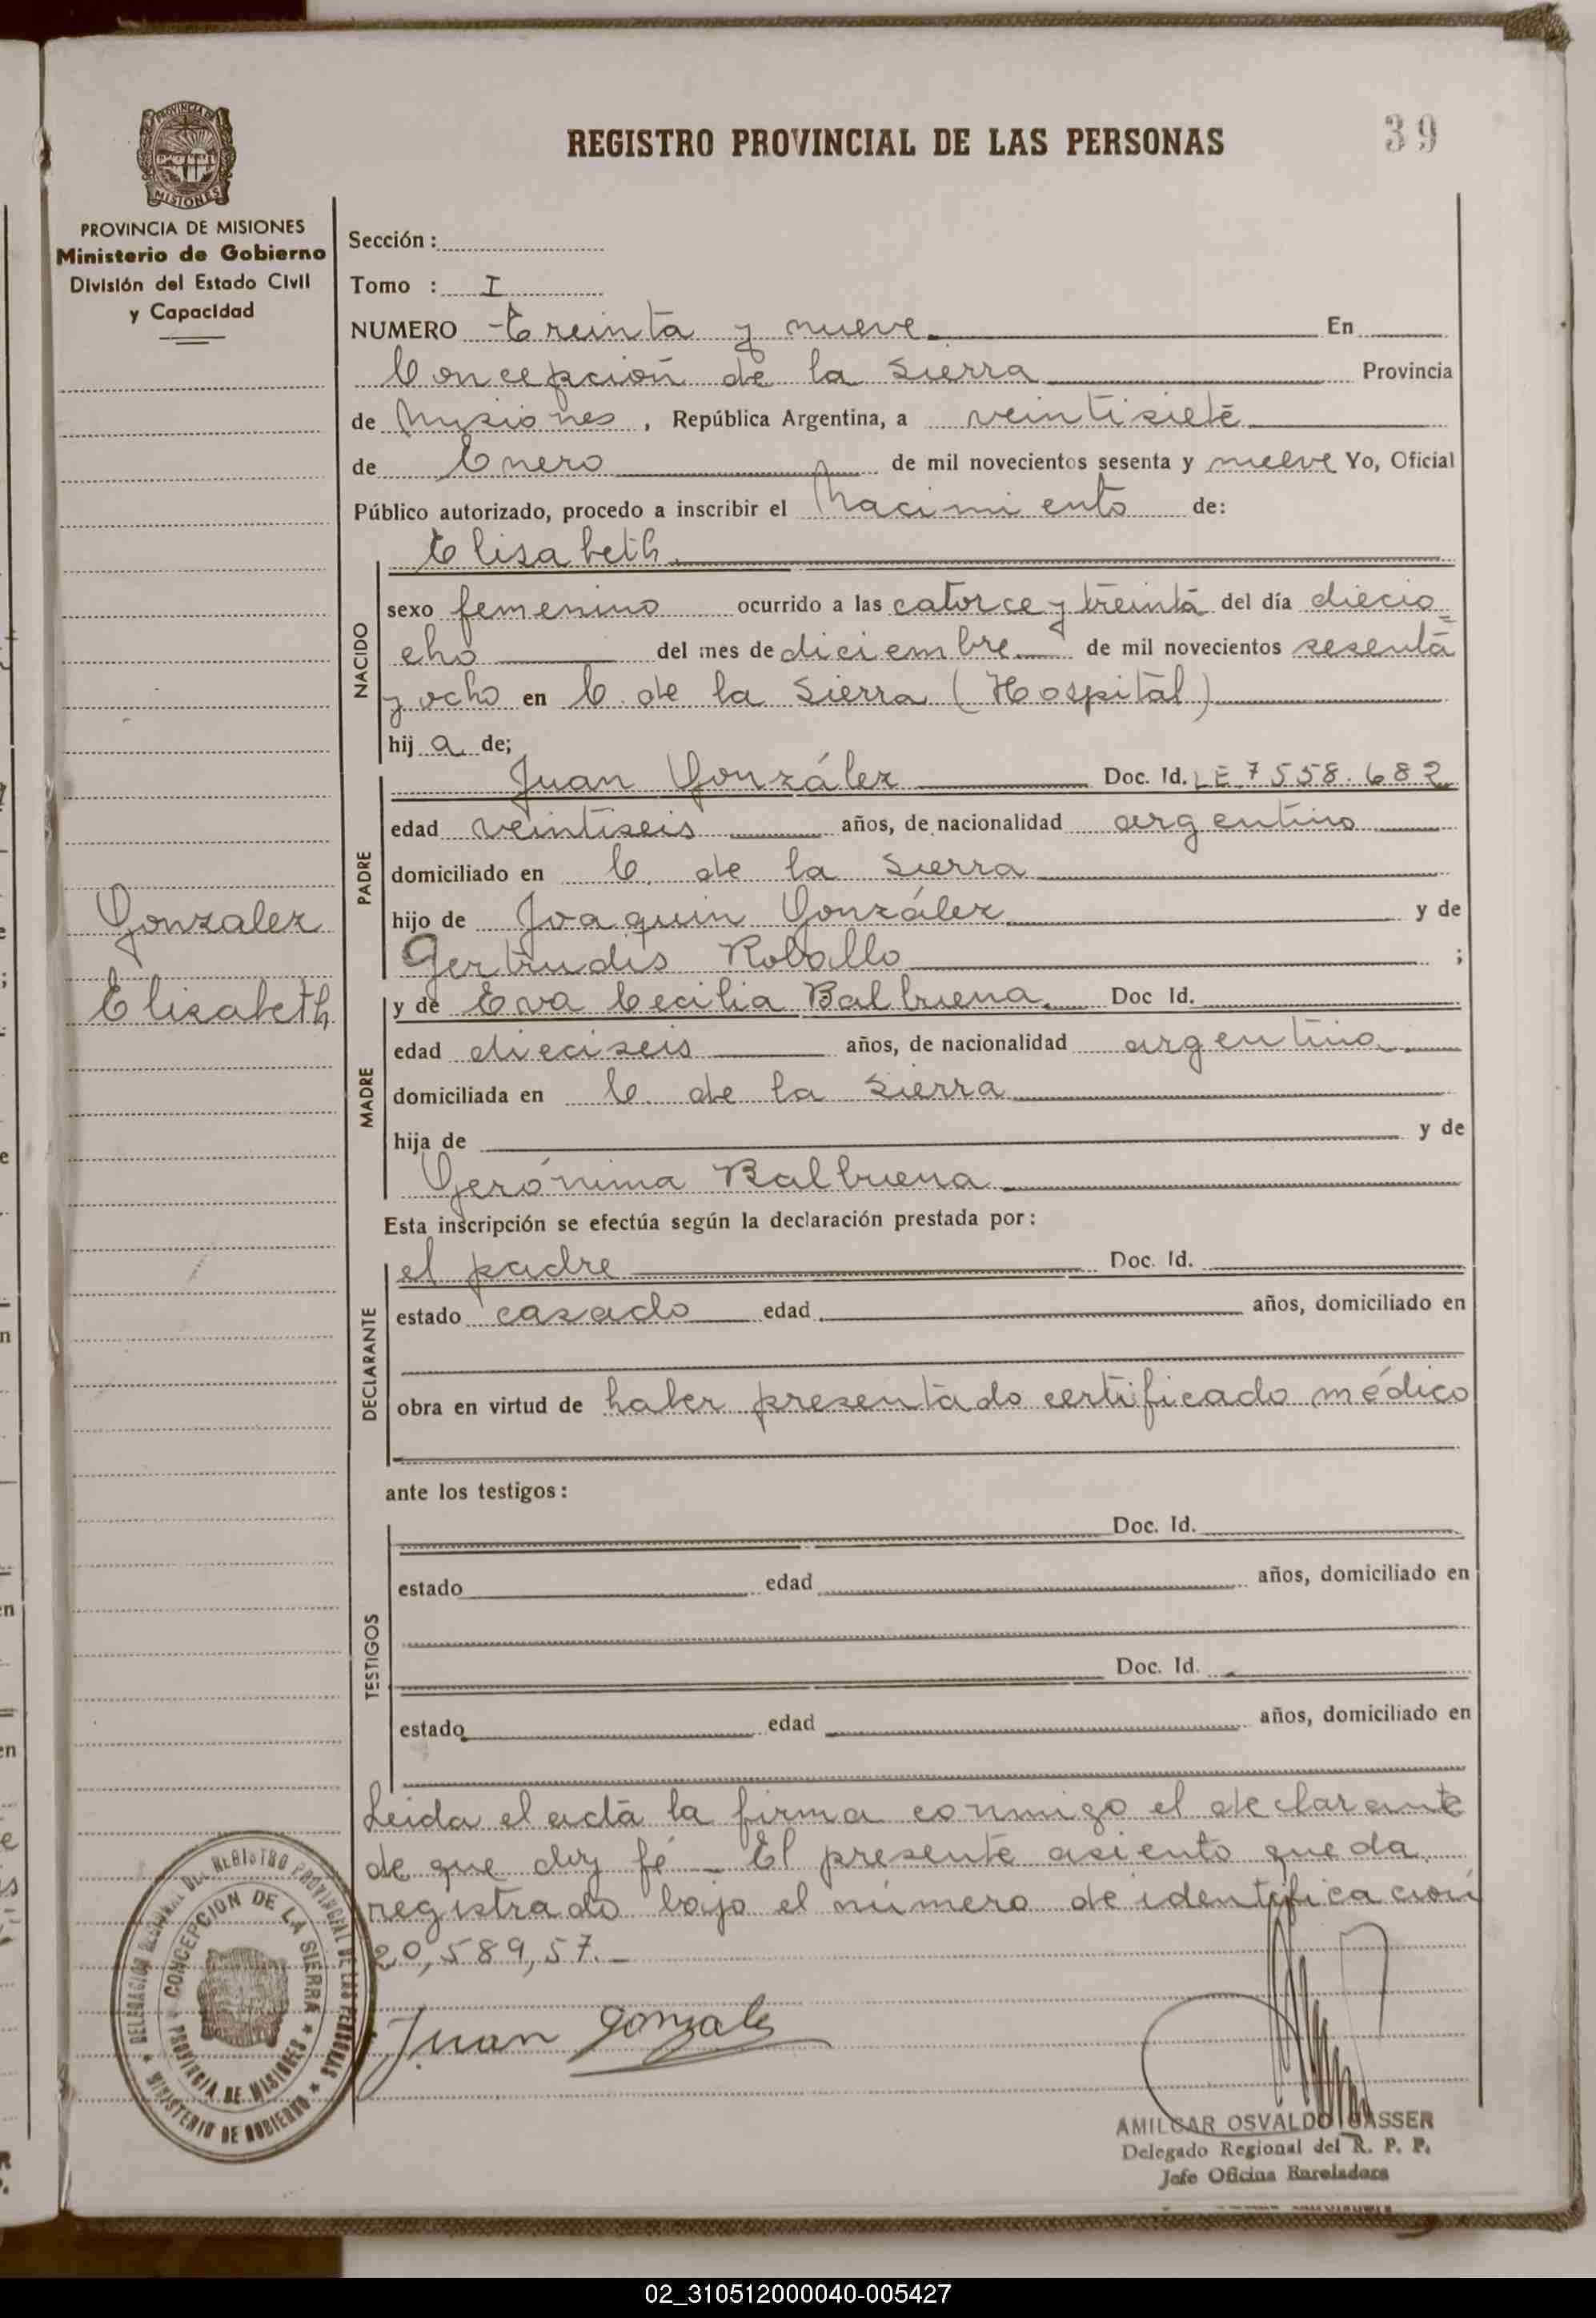 REGISTRO PROVINCIAL DE LAS PERSONAS
39
PROVINCIA DE MISIONES
Ministerio de Gobierno
División del Estado Civil
y Capacidad
Sección :
Tomo : I
NUMERO Treinta y nueve En
Concepción de la Sierra Provincia
de Misiones , República Argentina, a veintisiete
de Enero de mil novecientos sesenta y nueve Yo, Oficial
Público autorizado, procedo a inscribir el Nacimiento de:
Elisabeth
NACIDO
sexo femenino ocurrido a las catorce y treinta del día diecio
cho del mes de diciembre de mil novecientos sesenta
y ocho en C. de la Sierra (Hospital)
hij a de;
PADRE
Juan González Doc. Id. LE 7558.682
edad veintiseis años, de nacionalidad argentino
domiciliado en C. de la Sierra
hijo de Joaquin González y de
Gertrudis Roballo ;
Gonzalez
Elisabeth
MADRE
y de Eva Cecilia Balbuena Doc Id.
edad dieciseis años, de nacionalidad argentina
domiciliada en C. de la Sierra
hija de y de
Gerónima Balbuena
Esta inscripción se efectúa según la declaración prestada por :
DECLARANTE
el padre Doc. Id.
estado casado edad años, domiciliado en
obra en virtud de haber presentado certificado médico
ante los testigos :
TESTIGOS
Doc. Id.
estado edad años, domiciliado en
Doc. Id.
estado edad años, domiciliado en
Leida el acta la firma conmigo el declarante
de que doy fé - El presente asiento queda
registrado bajo el número de identificación
20,589,57.-
DELEGACION REGIONAL DEL REGISTRO PROVINCIAL DE LAS PERSONAS
MINISTERIO DE GOBIERNO
CONCEPCION DE LA SIERRA
PROVINCIA DE MISIONES
Juan Gonzalez
AMILCAR OSVALDO GASSER
Delegado Regional del R. P. P.
Jefe Oficina
02_310512000040-005427